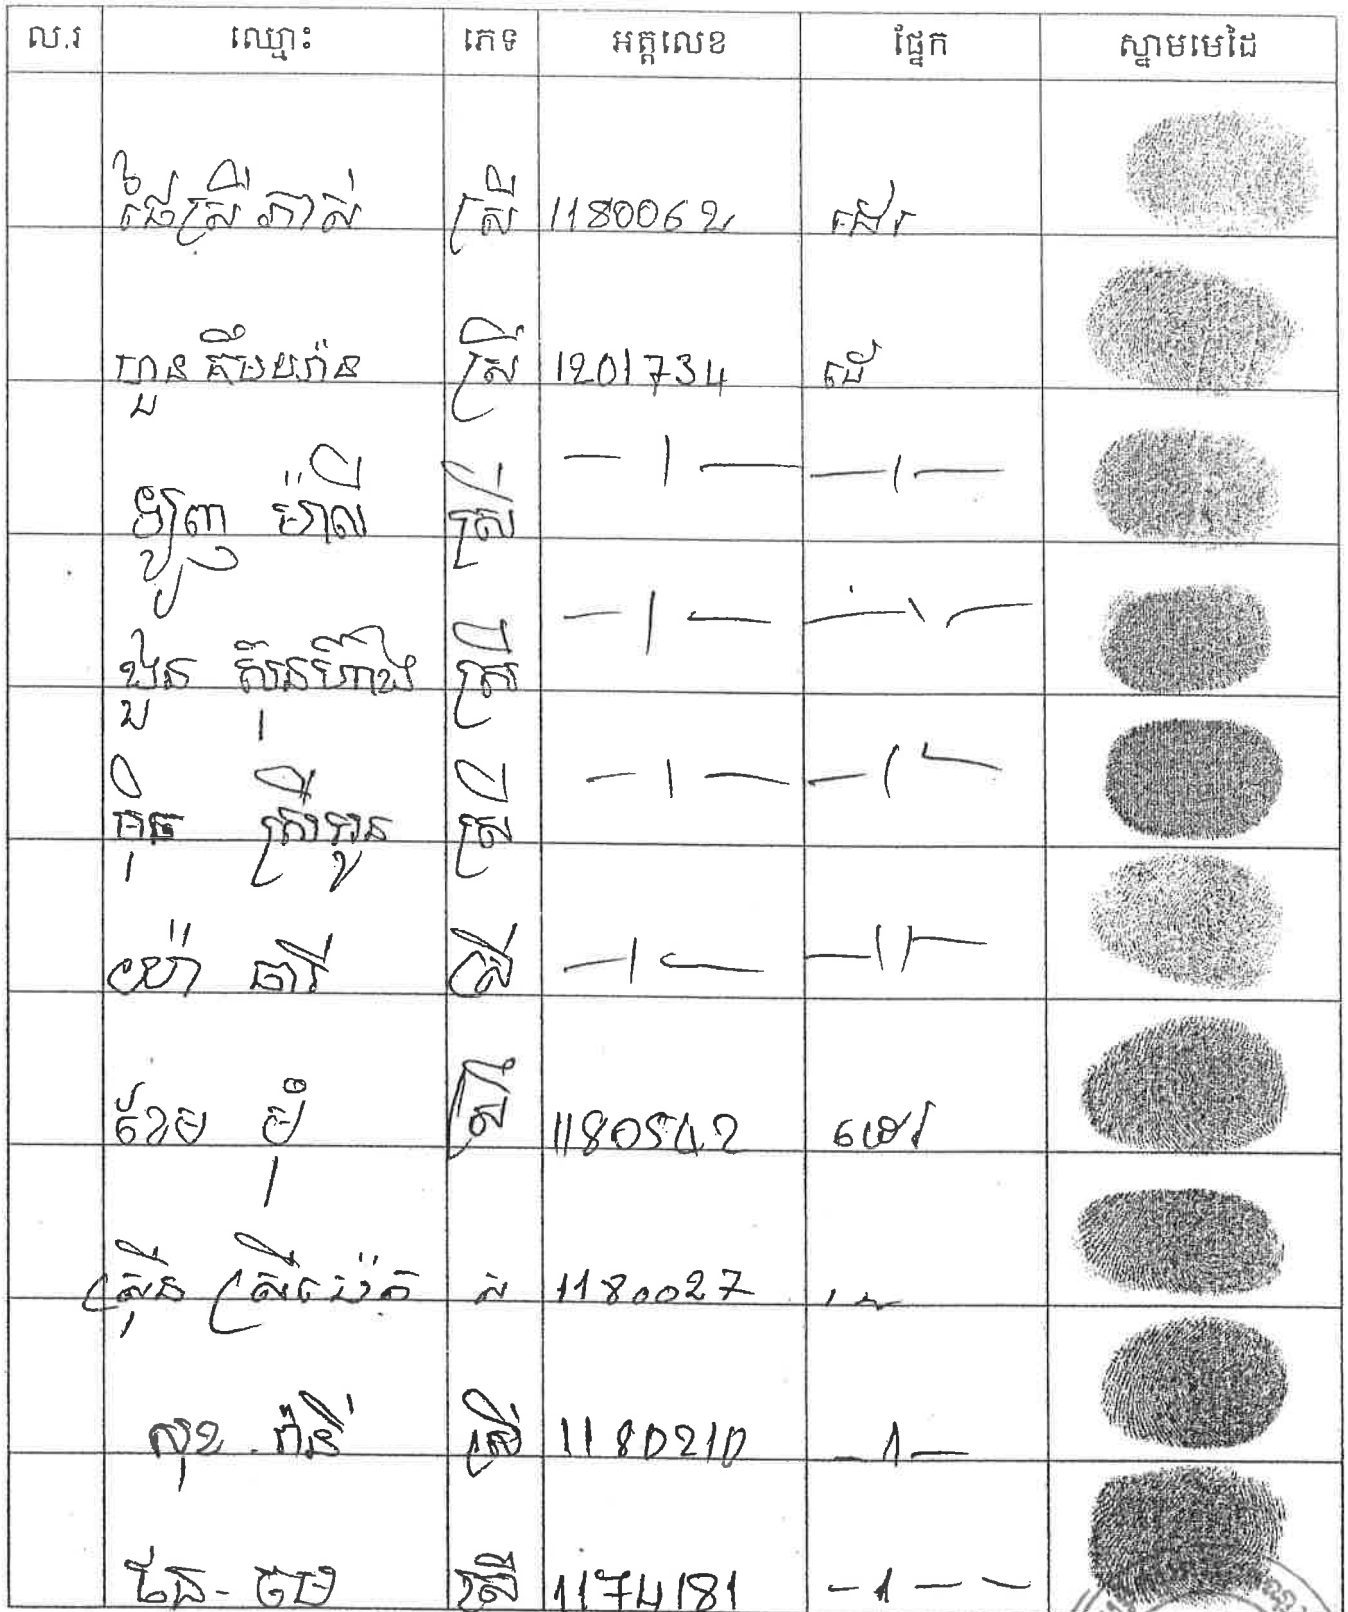 ល.រ ឈ្មោះ ភេទ អត្តលេខ ផ្នែក ស្នាមមេដៃ
ផៃស្រី ភាស់ ស្រី 1180062 ដេរ
ហួន គឹមយ៉ាន ស្រី 1201734 ដេ
ឡូញ ម៉ាលី ស្រី —|— —|—
ងួន ស៊ុនហ៊ាង ស្រី —|— —|—
មុិច ស្រីអូន ស្រី —|— —|—
យ៉ា ធារី ស្រី —|— —|—
ខែម មុំ ស្រី 1180542 ដេរ
ស្រ៊ុន ស្រីប៉េត ស 1180027
សុខ រ៉ានី ស្រី 1180210 —1—
ចែន - ចម ស្រី 1174181 —1——